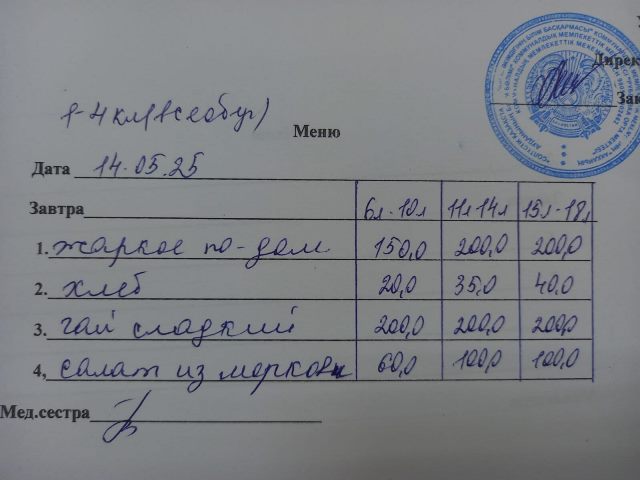 Дирек
Зак
1-4 кл (всеобуч)
Меню
Дата 14.05.25
Завтра 6л-10л 11л-14л 15л-18л
1. жаркое по-дом 150,0 200,0 200,0
2. хлеб 20,0 35,0 40,0
3. чай сладкий 200,0 200,0 200,0
4, салат из моркови 60,0 100,0 100,0
Мед.сестра